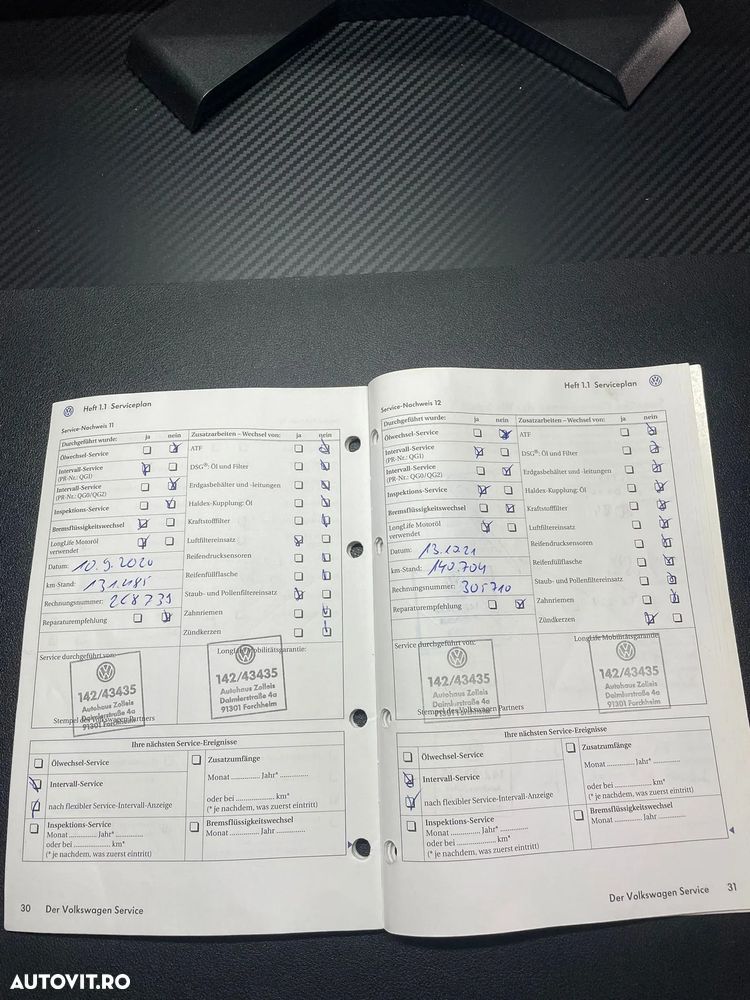 Heft 1.1 Serviceplan
Service-Nachweis 11
Durchgeführt wurde: ja nein
Ölwechsel-Service
Intervall-Service
(PR-Nr.: QG1)
Intervall-Service
(PR-Nr.: QG0/QG2)
Inspektions-Service
Bremsflüssigkeitswechsel
LongLife Motoröl
verwendet
Datum: 10.9.2020
km-Stand: 131.485
Rechnungsnummer: 268739
Reparaturempfehlung
Zusatzarbeiten – Wechsel von: ja nein
ATF
DSG®: Öl und Filter
Erdgasbehälter und -leitungen
Haldex-Kupplung: Öl
Kraftstofffilter
Luftfiltereinsatz
Reifendrucksensoren
Reifenfüllflasche
Staub- und Pollenfiltereinsatz
Zahnriemen
Zündkerzen
Service durchgeführt von:
142/43435
Autohaus Zolleis
Daimlerstraße 4a
91301 Forchheim
Stempel des Volkswagen Partners
LongLife Mobilitätsgarantie:
142/43435
Autohaus Zolleis
Daimlerstraße 4a
91301 Forchheim
Ihre nächsten Service-Ereignisse
Ölwechsel-Service
Intervall-Service
nach flexibler Service-Intervall-Anzeige
Inspektions-Service
Monat ............ Jahr* ............
oder bei ............ km*
(* je nachdem, was zuerst eintritt)
Zusatzumfänge
Monat ............ Jahr* ............
oder bei ............ km*
(* je nachdem, was zuerst eintritt)
Bremsflüssigkeitswechsel
Monat ............ Jahr ............
30 Der Volkswagen Service
Heft 1.1 Serviceplan
Service-Nachweis 12
Durchgeführt wurde: ja nein
Ölwechsel-Service
Intervall-Service
(PR-Nr.: QG1)
Intervall-Service
(PR-Nr.: QG0/QG2)
Inspektions-Service
Bremsflüssigkeitswechsel
LongLife Motoröl
verwendet
Datum:
km-Stand: 140.704
Rechnungsnummer: 305710
Reparaturempfehlung
Zusatzarbeiten – Wechsel von: ja nein
ATF
DSG®: Öl und Filter
Erdgasbehälter und -leitungen
Haldex-Kupplung: Öl
Kraftstofffilter
Luftfiltereinsatz
Reifendrucksensoren
Reifenfüllflasche
Staub- und Pollenfiltereinsatz
Zahnriemen
Zündkerzen
Service durchgeführt von:
142/43435
Autohaus Zolleis
Daimlerstraße 4a
91301 Forchheim
Stempel des Volkswagen Partners
LongLife Mobilitätsgarantie:
142/43435
Autohaus Zolleis
Daimlerstraße 4a
91301 Forchheim
Ihre nächsten Service-Ereignisse
Ölwechsel-Service
Intervall-Service
nach flexibler Service-Intervall-Anzeige
Inspektions-Service
Monat ............ Jahr* ............
oder bei ............ km*
(* je nachdem, was zuerst eintritt)
Zusatzumfänge
Monat ............ Jahr* ............
oder bei ............ km*
(* je nachdem, was zuerst eintritt)
Bremsflüssigkeitswechsel
Monat ............ Jahr ............
Der Volkswagen Service 31
AUTOVIT.RO